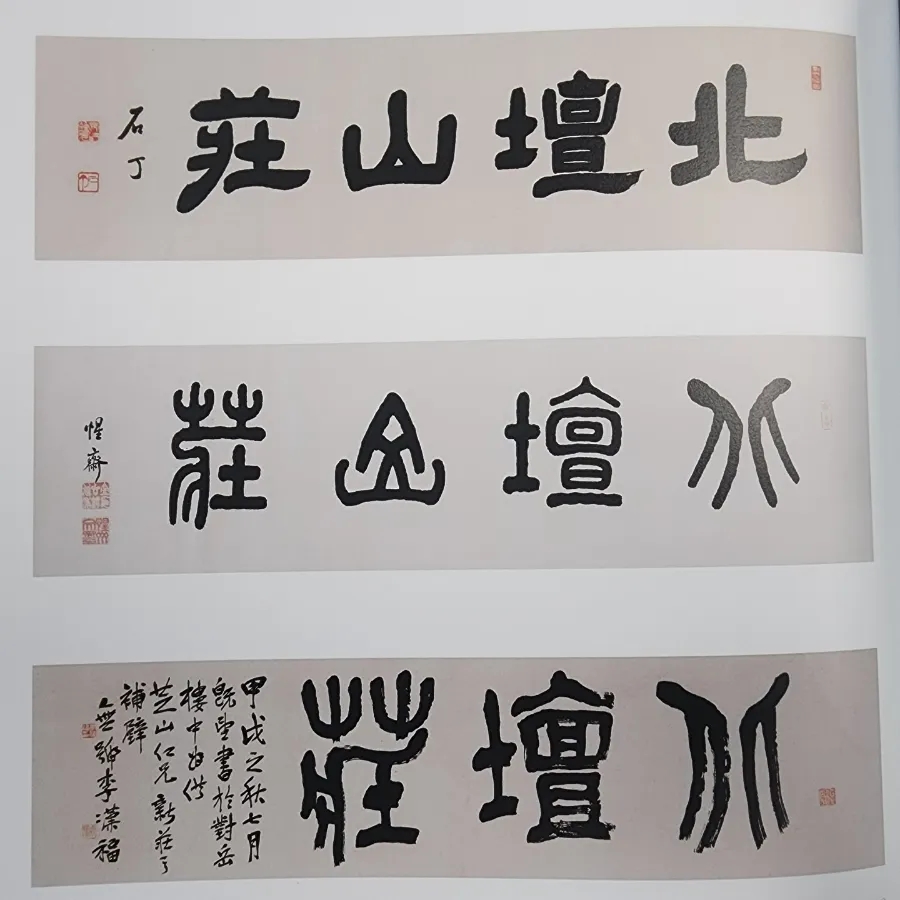 北壇山莊
石丁
北壇山莊
惺齋
北壇莊
甲戌之秋七月
旣望書於對岳
樓中爲供
芝山仁兄新莊之
補壁
無號李漢福